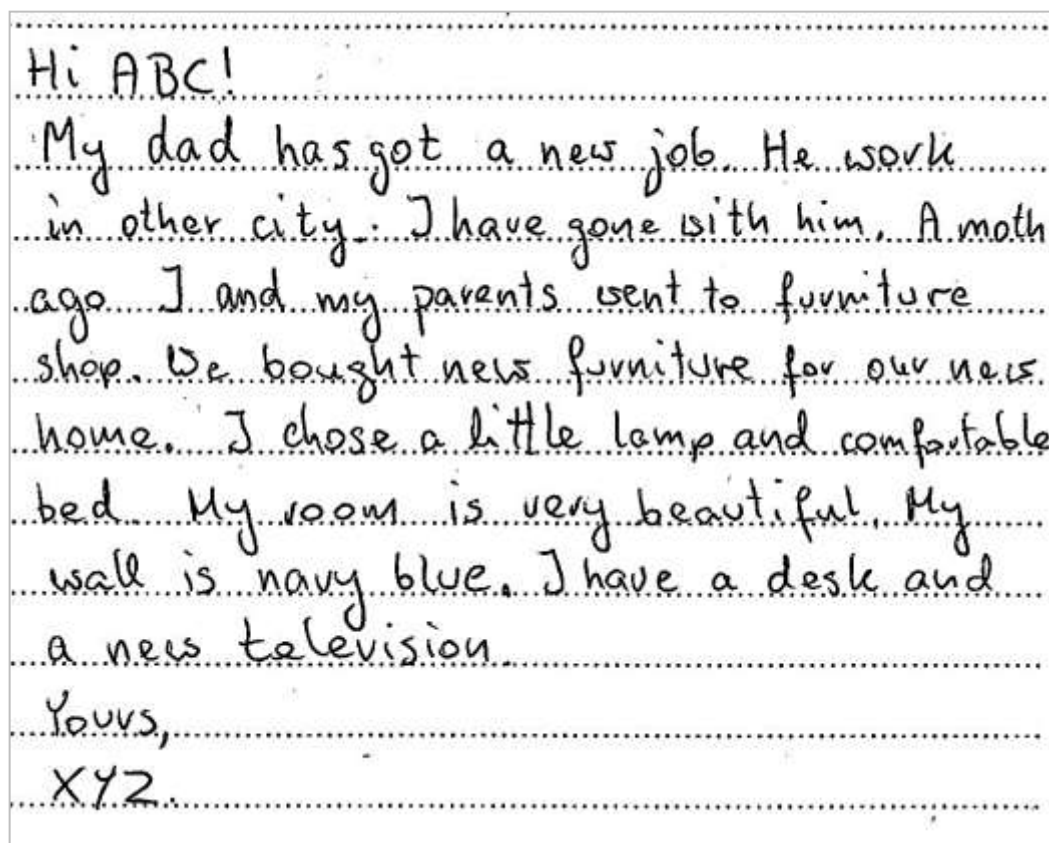 Hi ABC!
My dad has got a new job. He work
in other city. I have gone with him. A moth
ago I and my parents went to furniture
shop. We bought new furniture for our new
home. I chose a little lamp and comfortable
bed My room is very beautiful. My
wall is navy blue. I have a desk and
a new television.
Yours,
XYZ.